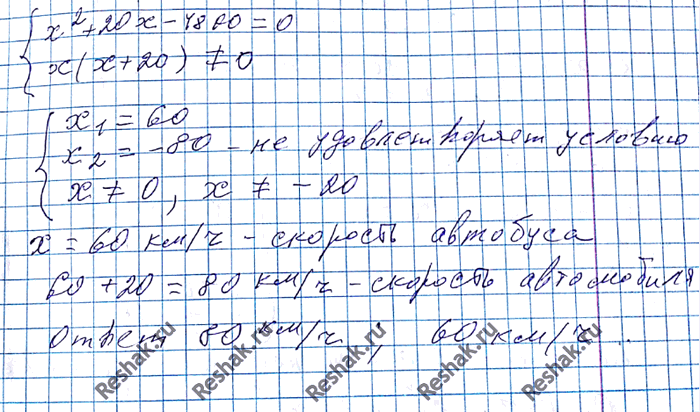 x² + 20x - 4800 = 0
x(x+20) ≠ 0
x₁ = 60
x₂ = -80 - не удовлетворяет условию
x ≠ 0, x ≠ -20
x = 60 км/ч - скорость автобуса
60 + 20 = 80 км/ч - скорость автомобиля
Ответ 80 км/ч; 60 км/ч.
Reshak.ru Reshak.ru Reshak.ru Reshak.ru Reshak.ru